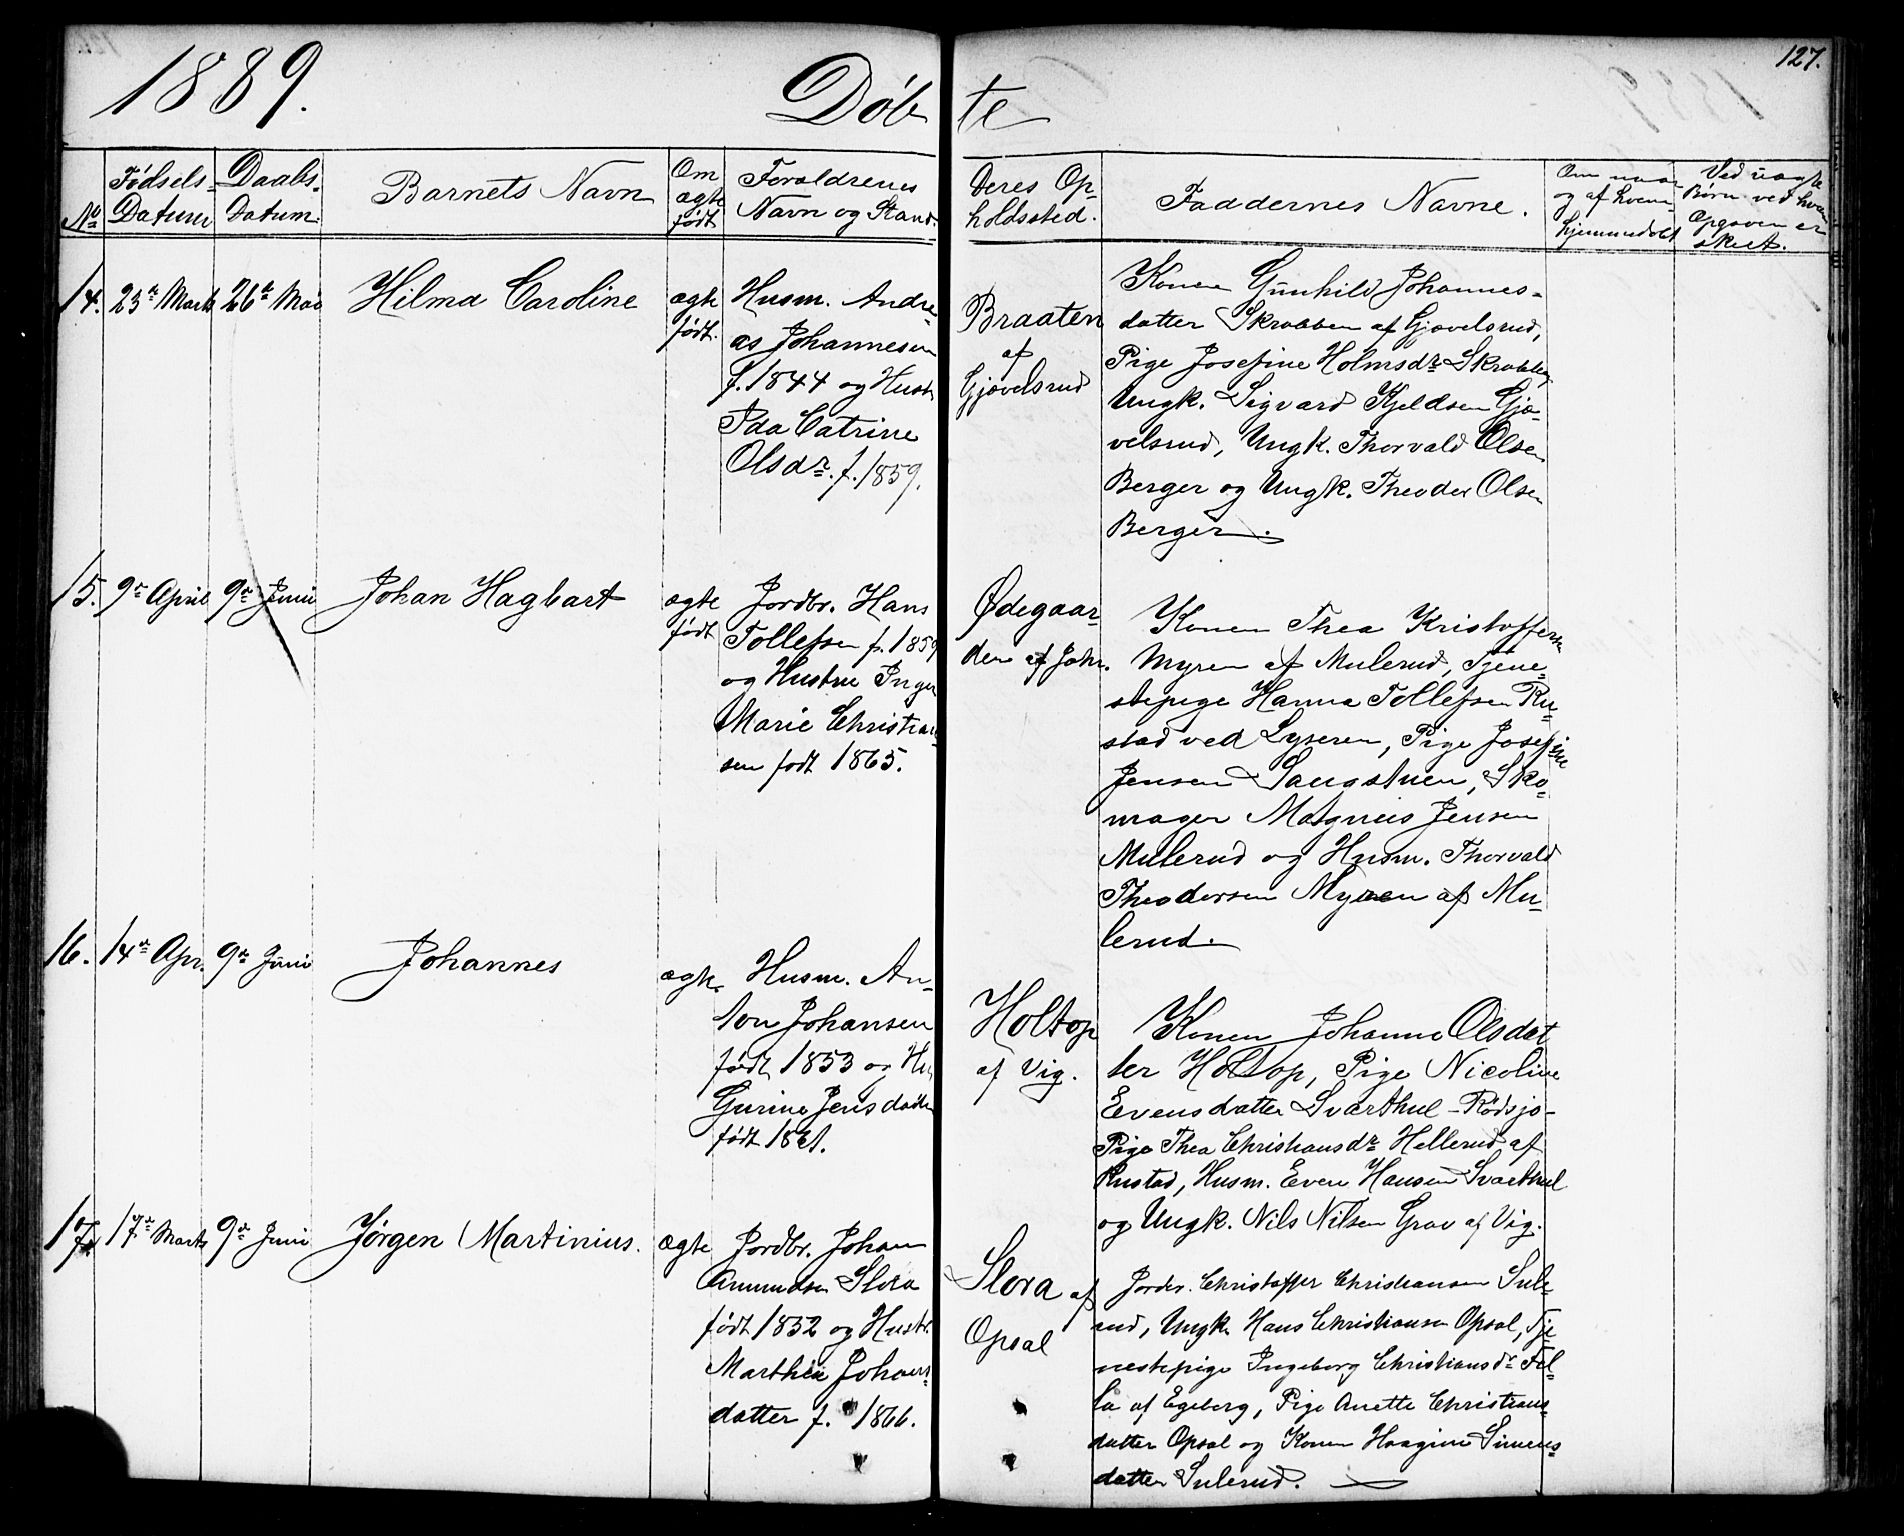 1889.
Døbte
127.
No
Fødsels-
Datum
Daabs-
Datum.
Barnets Navn
Om
ægte
født
Forældrenes
Navn og Stand.
Deres Op-
holdssted.
Faddernes Navne.
Om naar
og af hvem
hjemmedøbt
Ved uægte
Børn ved hvem
Opgaven er
skeet.
14.
23de Marts
26de Mai
Hilma Caroline
ægte
født.
Husm. Andre-
as Johannesen
f. 1844 og Hustr
Ida Catrine
Olsdr. f. 1859.
Braaten
af
Gjøvelsrud
Konen Gunhild Johannes-
datter Skrabben af Gjøvelsrud,
Pige Josefine Holmsdr Skrabben
Ungk. Sigvard Kjeldsen Gjø-
velsrud, Ungk. Thorvald Olsen
Berger og Ungk. Theodor Olsen
Berger.
15.
9de April
9de Juni
Johan Hagbart
ægte
født
Jordbr. Hans
Tollefsen f. 1859
og Hustrue Inger
Marie Christian-
sen født 1865.
Ødegaar-
den af Jahr.
Konen Thea Kristoffersen
Myren af Mulerud, Tjene-
stepige Hanna Tollefsen Ru-
stad ved Lyseren, Pige Josefine
Jensen Saugstuen, Sko-
mager Magnus Jensen
Mulerud og Husm. Thorvald
Theodorsen Myren af Mu-
lerud.
16.
14de Apr.
9de Juni
Johannes
ægte
Husm. An-
ton Johansen
født 1853 og Hu
Gurine Jensdatter
født 1861.
Holtop
af Vig.
Konen Johanne Olsdat
ter Holtop, Pige Nicoline
Evensdatter Svarthul - Rødsjø-
Pige Thea Christiansdr Hellerud af
Rustad, Husm. Even Hansen Svarthul
og Ungk. Nils Nilsen Grav af Vig.
17
17de Marts
9de Juni
Jørgen Martinius.
ægte
Jordbr. Johan
Amundsen Slora
født 1832 og Hustr.
Marthea Johans-
datter f. 1866.
Slora af
Opsal
Jordbr. Christoffer Christiansen Sule-
rud, Ungk Hans Christiansen Opsal, Tje
nestepige Ingeborg Christiansdr Fel-
la af Egeberg, Pige Anette Christians-
datter Opsal og Konen Haagine Simens-
datter Sulerud.